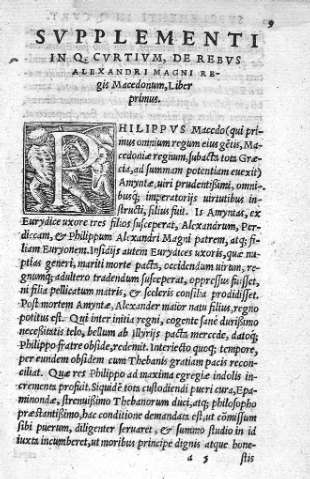 9
SVPPLEMENTI
IN Q. CVRTIVM, DE REBVS
ALEXANDRI MAGNI RE-
gis Macedonum, Liber
primus.
PHILIPPVS Macedo (qui pri
mus omnium regum eius gẽtis, Ma-
cedoniæ regnum, subacta tota Græ-
cia, ad summam potentiam euexit)
Amyntæ, uiri prudentißimi, omni-
busq; imperatorijs uirtutibus in-
structi, filius fuit. Is Amyntas, ex
Eurydice uxore tres filios susceperat, Alexandrum, Per-
diccam, & Philippum Alexandri Magni patrem, atq; fi-
liam Euryonem. Insidijs autem Eurydices uxoris, quæ nu-
ptias generi, mariti morte pacta, occidendum uirum, re-
gnumq; adultero tradendum susceperat, oppressus fuisset,
ni filia pellicatum matris, & sceleris consilia prodidisset.
Post mortem Amyntæ, Alexander maior natu filius, regno
potitus est. Qui inter initia regni, cogente sanè durißimo
necessitatis telo, bellum ab Illyrijs pacta mercede, datoq;
Philippo fratre obside, redemit. Interiecto quoq; tempore,
per eundem obsidem cum Thebanis gratiam pacis recon-
ciliat. Quæ res Philippo ad maxima egregiæ indolis in-
crementa profuit. Siquidẽ tota custodiendi pueri cura, Epa-
minondæ, strenuißimo Thebanorum duci, atq; philosopho
præstantißimo, hac conditione demandata est, ut cõmissum
sibi puerum, diligenter seruaret, & summo studio in id
iuxta incumberet, ut moribus principe dignis atque hone-
a 5 stis